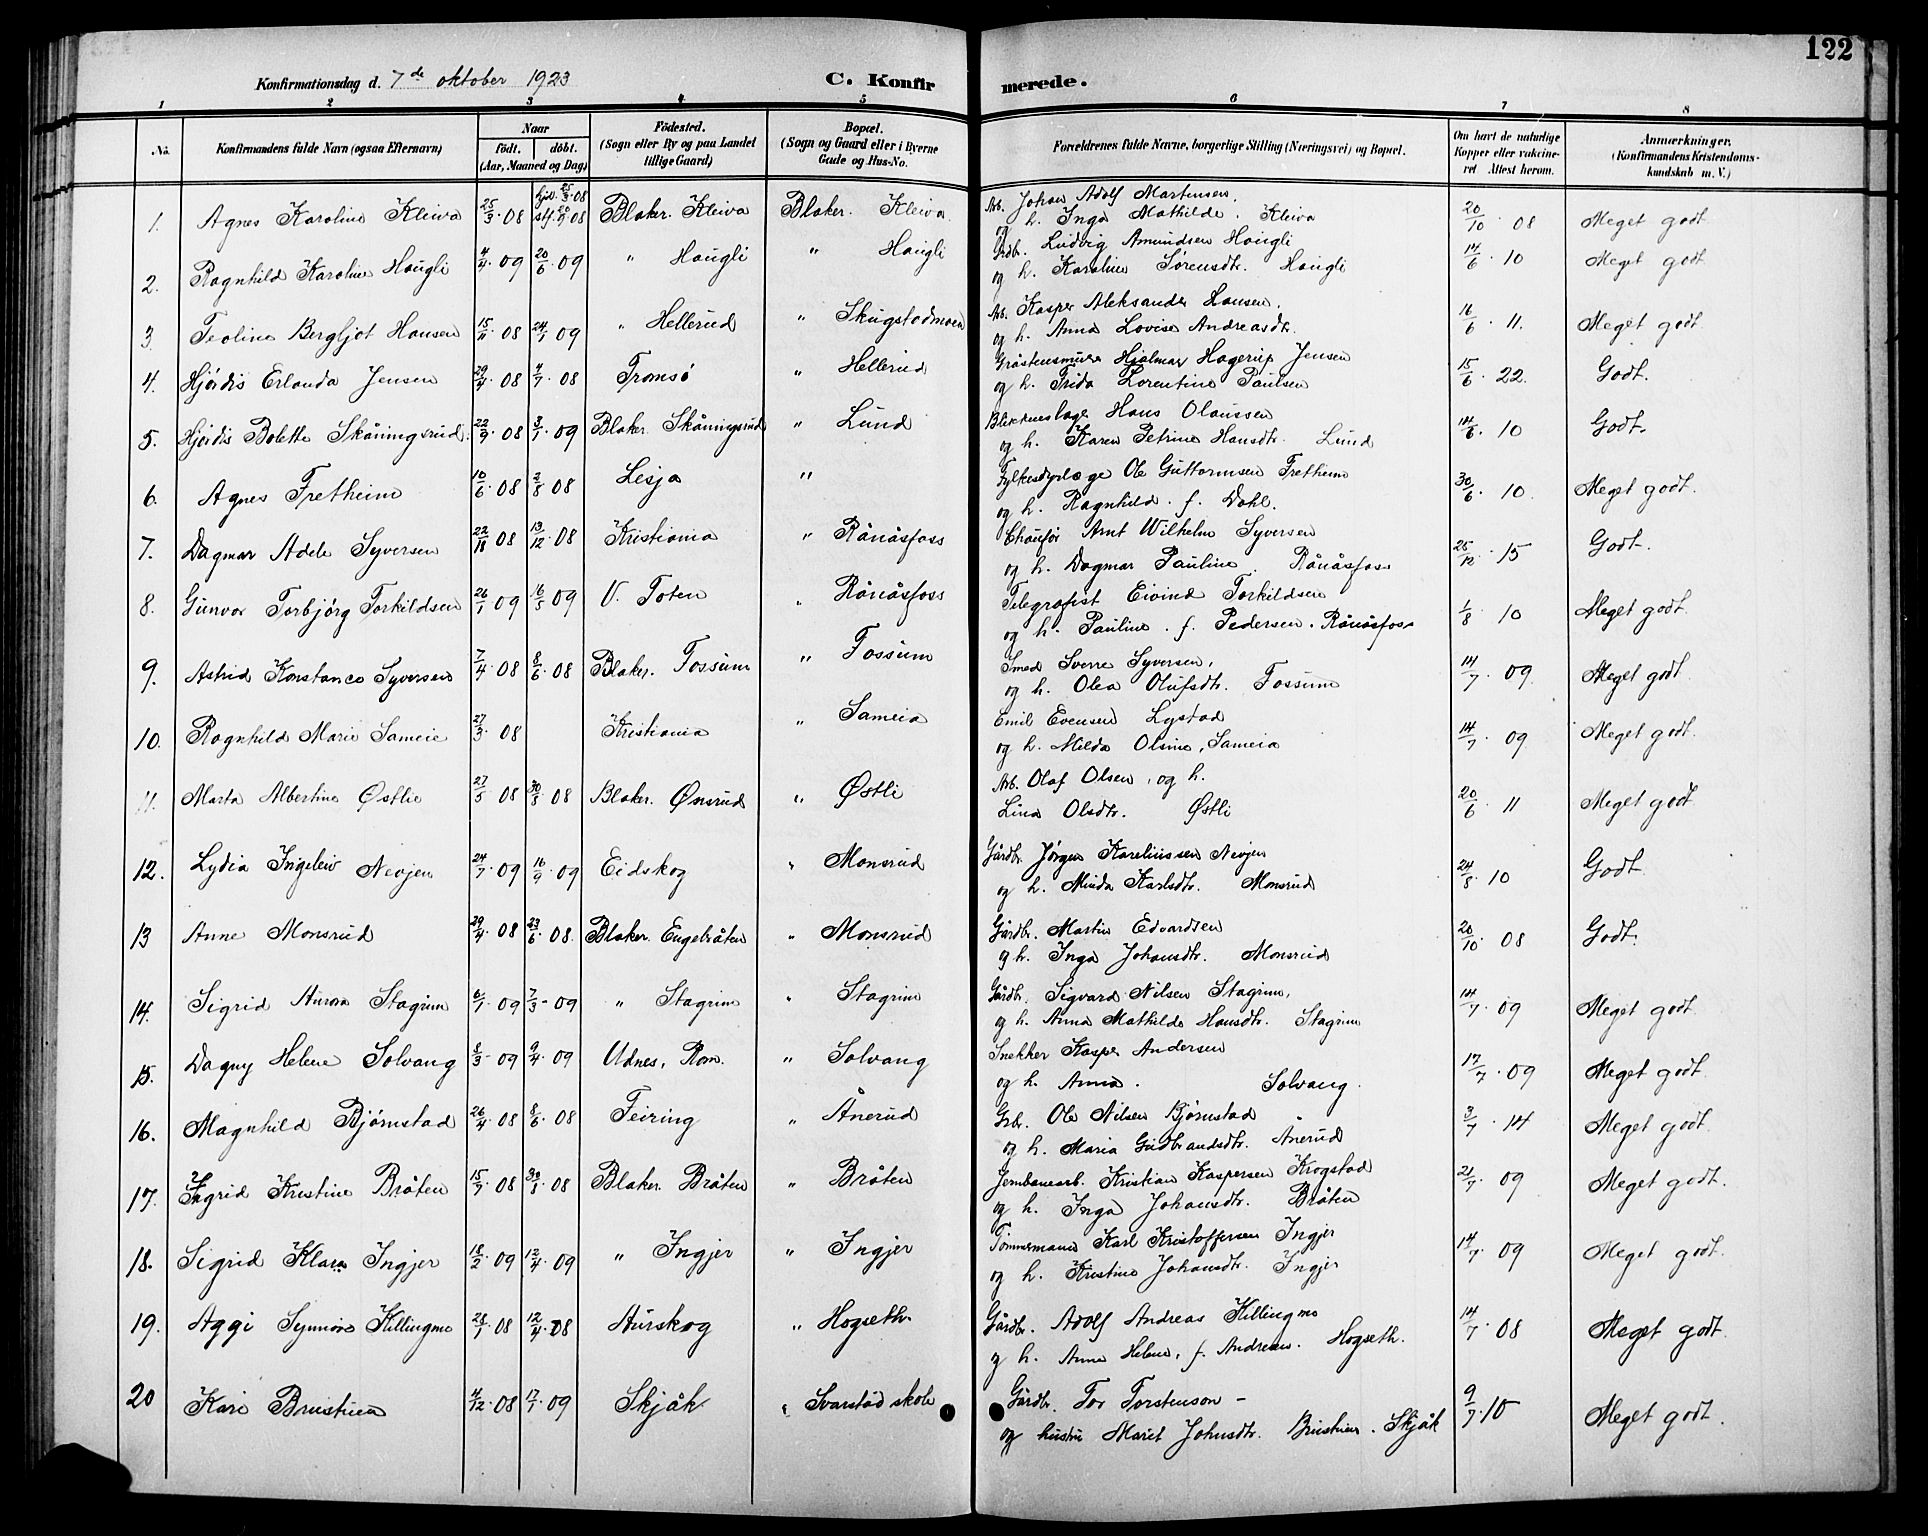 122
Konfirmationsdag d. 7de oktober 1923
C. Konfirmerede.
1 2 3 4 5 6 7 8
No. Konfirmandens fulde Navn (ogsaa Efternavn) Naar födt. döbt. (Aar, Maaned og Dag) Födested. (Sogn eller By og paa Landet tillige Gaard) Bopæl. (Sogn og Gaard eller i Byerne Gade og Hus-No. Forældrenes fulde Navne, borgerlige Stilling (Næringsvei) og Bopæl. Om havt de naturlige Kopper eller vakcineret Attest herom. Anmærkninger. (Konfirmandens Kristendomskundskab m. V.)
1. Agnes Karoline Kleiva 25/3 08 hjd. 25/3 08 Blaker. Kleiva Blaker. Kleiva Arb. Johan Adolf Martinsen, 20/10 08 Meget godt
og h. Inga Mathilde. Kleiva
2. Ragnhild Karoline Haugli 4/4 09 20/6 09 " Haugli " Haugli Grdbr. Ludvig Amundsen Haugli 14/6 10 Meget godt
og h. Karoline Sørensdtr. Haugli
3. Teoline Bergljot Hansen 15/11 08 24/1 09 " Hellerud " Skugstadmoen Arb. Kasper Aleksander Hansen, 16/6 11. Meget godt
og h. Anna Lovise Andreasdtr.
4. Hjördis Erlanda Jensen 29/4 08 4/7 08 Tromsö " Hellerud Gråstensmurer Hjalmar Hagerup Jensen 15/6 22. Godt.
og h. Frida Lorentine Paulsen
5. Hjördis Bolette Skåningsrud. 22/9 08 3/1 09 Blaker. Skåningsrud " Lund Blikkenslager Hans Olaussen 14/6 10 Godt.
og h. Karen Petrine Hansdtr. Lund
6. Agnes Fretheim 10/6 08 2/8 08 Lesja " Fylkesdyrlæge Ole Guttormsen Fretheim 30/6 10. Meget godt.
og h. Ragnhild. f. Dahl.
7. Dagmar Adele Syversen 22/10 08 13/12 08 Kristiania " Rånåsfoss Chauför Arnt Wilhelm Syversen 25/12 15 Godt.
og h. Dagmar Pauline. Rånåsfoss
8. Gunvor Torbjörg Torkildsen 26/1 09 16/5 09 V. Toten " Rånåsfoss Telegrafist Eivind Torkildsen 1/8 10 Meget godt.
og h. Pauline. f. Pedersen. Rånåsfoss
9. Astrid Konstance Syversen 7/4 08 8/6 08 Blaker. Fossum " Fossum Smed Sverre Syversen, 14/7 09. Meget godt
og h. Olea Olufsdtr. Fossum
10. Ragnhild Marie Sameie 27/3 08 Kristiania " Sameia Emil Evensen Lystad 14/7 09 Meget godt.
og h. Milda Olsine, Sameia
11. Marta Albertine Østlie 27/5 08 30/8 08 Blaker. Ønsrud " Østli Arb. Olaf Olsen, og h. 20/6 11 Meget godt
Lina Olsdtr. Østli
12. Lydia Ingeleiv Nevjen 24/7 09 16/9 09 Eidskog " Monsrud Gårdbr. Jørgen Kareliussen Nevjen 24/8 10 Godt
og h. Minda Karlsdtr. Monsrud
13 Anne Monsrud 29/4 08 23/6 08 Blaker. Engebråten " Monsrud Gårdbr. Martin Edvardsen 20/10 08 Godt.
og h. Inga Johansdtr. Monsrud
14. Sigrid Aurora Stagrim 6/1 09 7/3 09 " Stagrim " Stagrim Gårdbr. Sigvard Nilsen Stagrim, 14/7 09 Meget godt
og h. Anna Mathilde Hansdtr. Stagrim
15. Dagny Helene Solvang 8/3 09 9/4 09 Udnes, Rom. " Solvang Snekker Kasper Andersen 17/7 09 Meget godt.
og h. Anna. Solvang.
16. Magnhild Bjørnstad 26/4 08 8/6 08 Feiring " Ånerud Grbr. Ole Nilsen Bjørnstad 3/7 14 Meget godt.
og h. Maria Gudbrandsdtr. Ånerud
17. Ingrid Kristine Bråten 15/7 08 30/8 08 Blaker. Bråten " Bråten Jernbanearb. Kristian Kaspersen Krogstad 21/7 09 Meget godt.
og h. Inga Johansdtr. Bråten
18. Sigrid Klara Ingjer 18/2 09 12/4 09 " Ingjer " Ingjer Tömmermand Karl Kristoffersen Ingjer 14/7 09 Meget godt.
og h. Kristine Johansdtr. Ingjer
19. Aggi Synnöve Killingmo 28/1 08 12/4 08 Aurskog " Hogseth Gårdbr. Adolf Andreas Killingmo 14/7 08 Meget godt.
og h. Anna Helene, f. Andresen. Hogseth.
20 Kari Brustuen 4/12 08 17/1 09 Skjåk " Svarstad skole Gårdbr. Tor Torstenson - 9/7 10 Meget godt.
og hustru Marit Johnsdtr. Brustuen. Skjåk